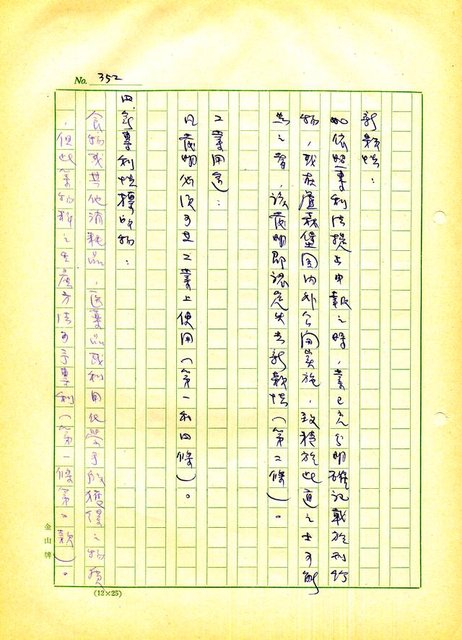 No. 352
新穎性：
如依照專利法提出申報之時，業已充分明確記載於刊行
物，或在盧森堡國內外公開實施，致精於此道之士可能
為之者，該發明即認定失去新穎性（第二條）。
工業用途：
凡發明必須可在工業上使用（第一和四條）。
四、非專利性標的物：
食物或其他消耗品，醫藥品或利用化學手段獲得之物質
，但此等物料之生產方法可予專利（第一條第 款）。
金山牌
(12×25)